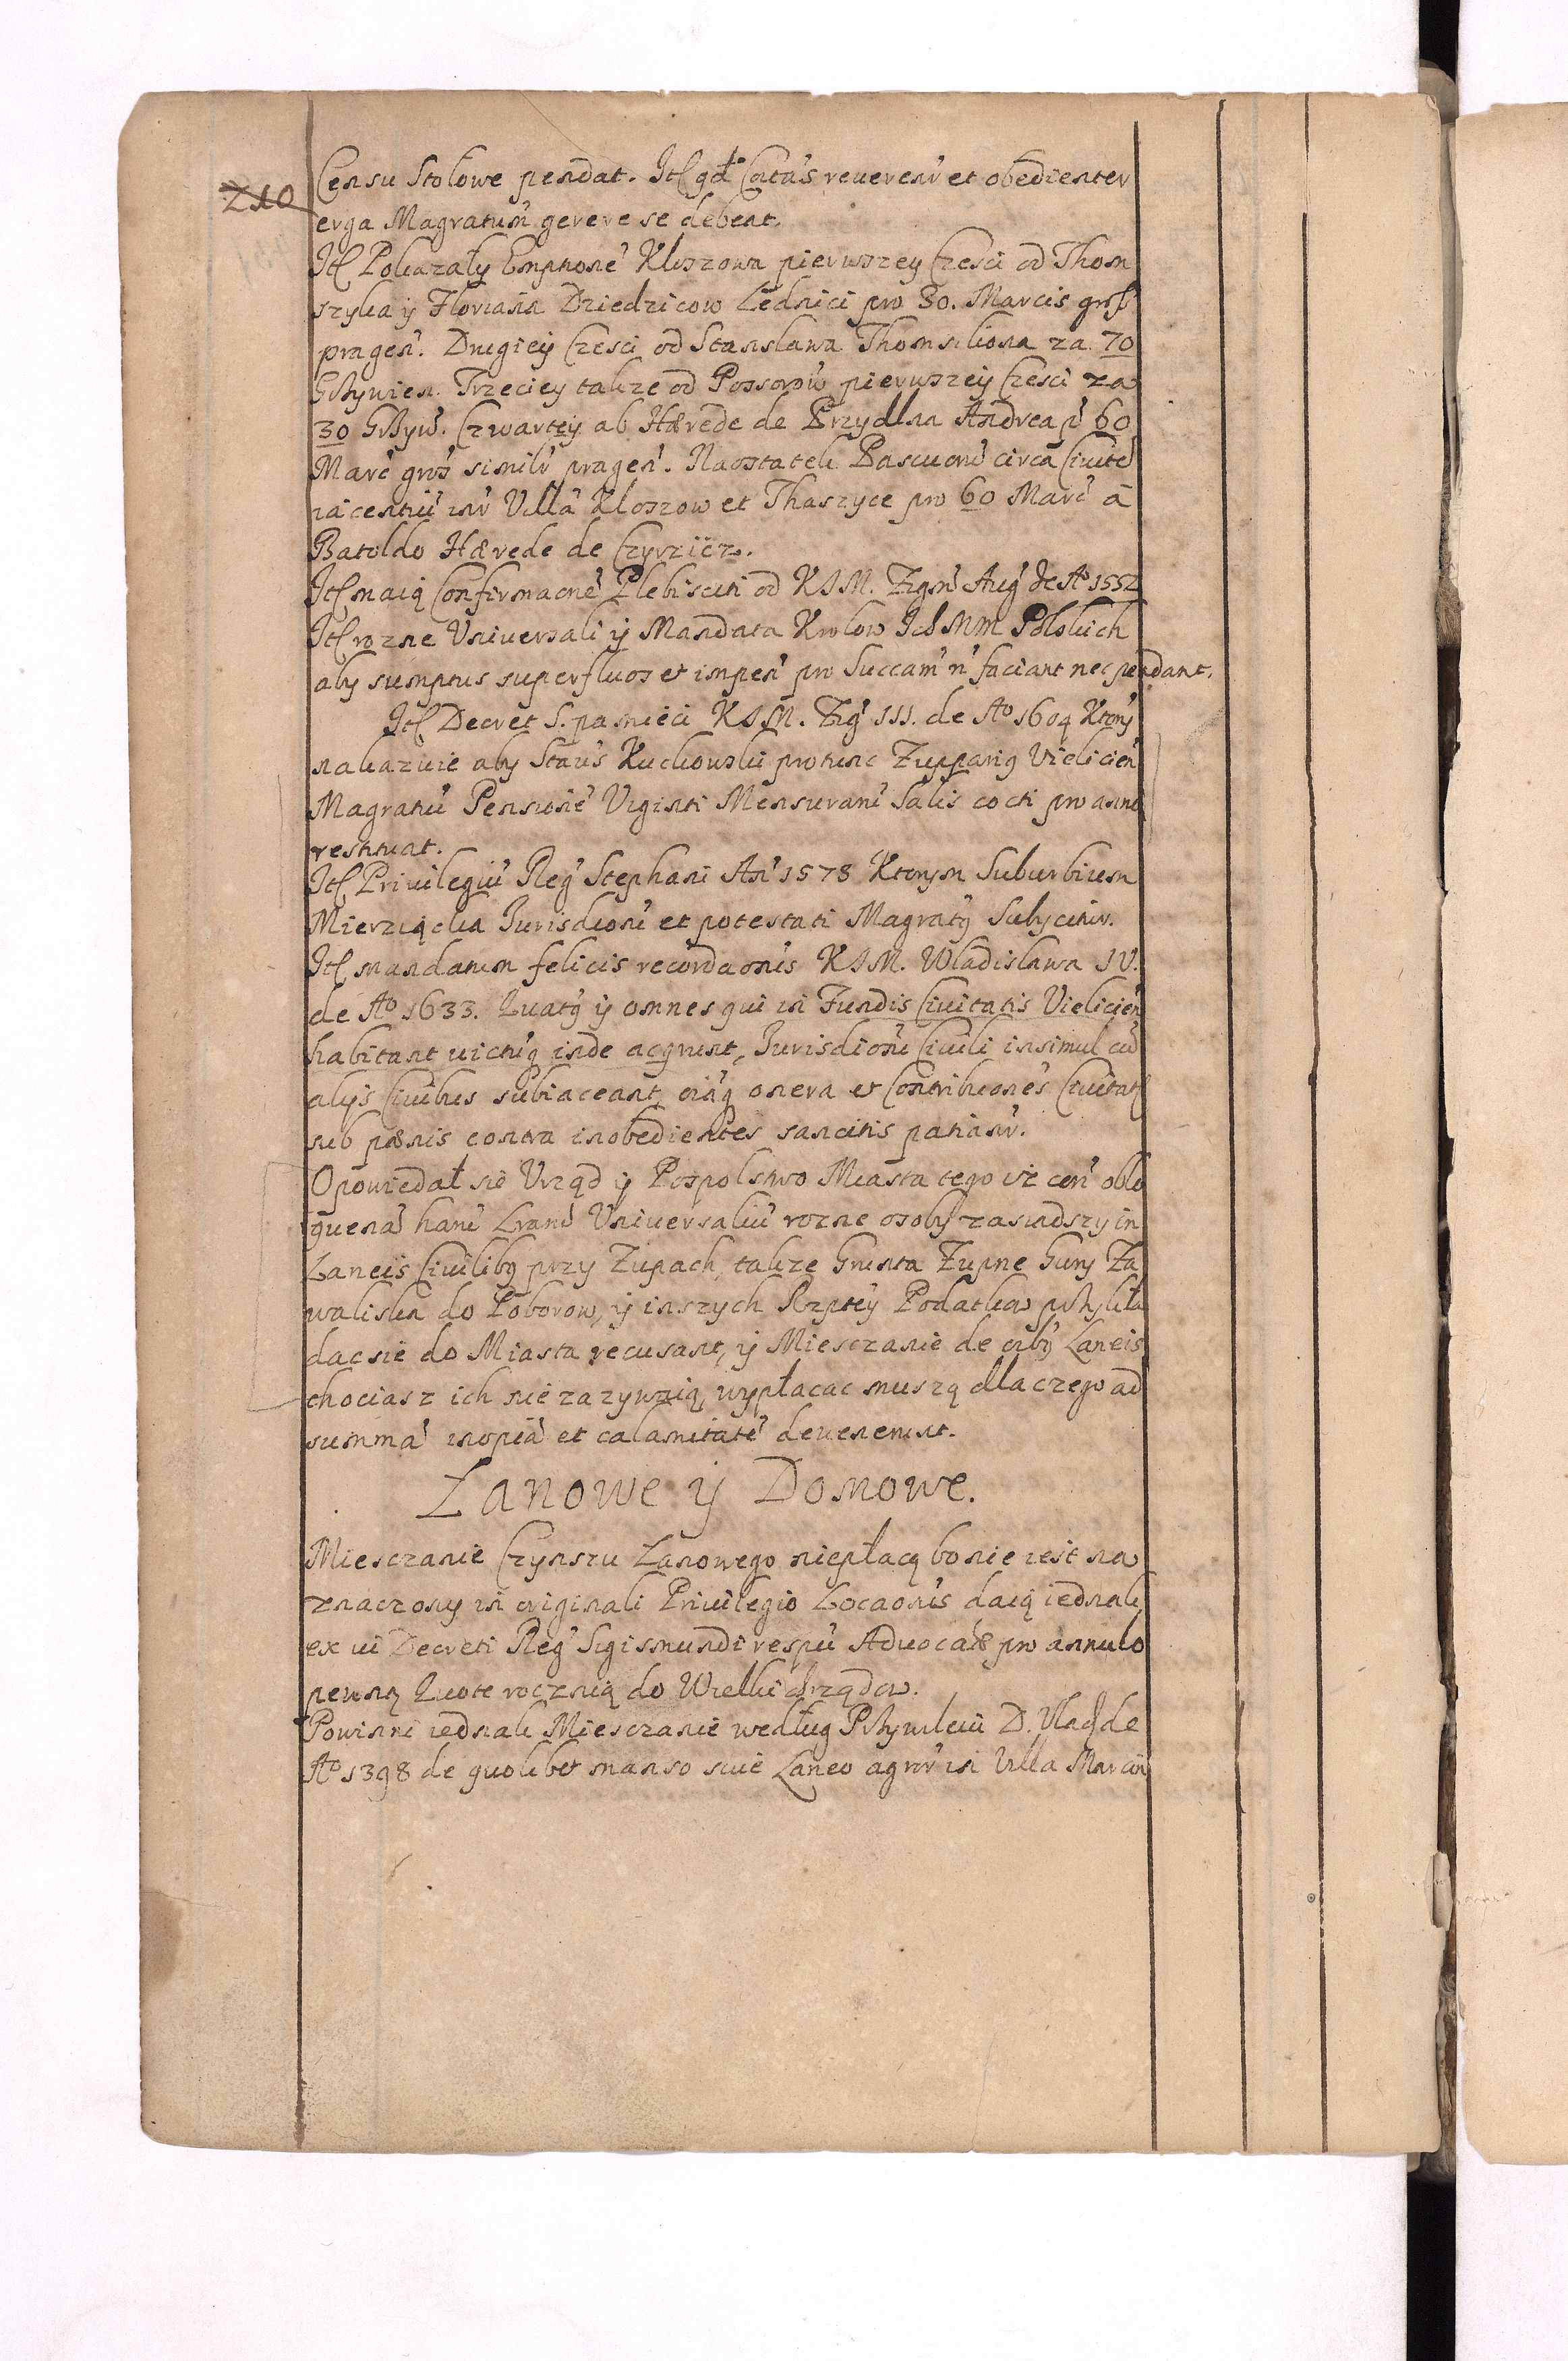 210
Censu Stołowe pendat. Itt qd Cõtas reverenr et obedienter
erga Magratum gerere se debent.
Itt Pokazały Emptione Kloszowa pierwszey Czesci od Thom
szyka ÿ Floriana Dziedzicow Lednici pro 30. Marcis gross
pragen. Drugieÿ Czesci od Stanislawa Thomsikona za 70
GRzywien. Trzeciey takze od Possorow pierwszeÿ Czesci za
30 GRzyw. Czwarteÿ ab Hærede de Przydlna Andrea p 60
Marc gros similr pragen. Naostatek Pascuoru circa Civite
iacentiu inr Villa Kloszow et Thaszyce pro 60 Marc a
Batoldo Hærede de Czyrzicz.
Itt maią Confirmacne Plebisciti od KJM. Zigm Aug de Ao 1552
Itt rozne Universali ÿ Mandata Krolow Ich MM Polskich
aby sumptus superfluos et impen pro Succam n faciant nec pendant.
Itt Decret S. pamieci KJM. Zig III. de Ao 1604 Ktory
nakazuie aby Staus Kuckowski pro tunc Zuppariq Vielicien
Magratui Pensione Viginti Mensuraru Salis cocti pro anno
restituat.
Itt Privilegiu Reg Stephani An 1578 Ktorym Suburbium
Mierziączka Jurisdioni et potestati Magratq Subycitur.
Itt mandatum felicis recordaonis KJM. Wladislawa IV.
de Ao 1633. Quatq ÿ omnes qui in Fundis Civitatis Vielicien
habitant victuq inde acqrunt, Jurisdioni Civili insimul cu
alÿs Civibus subiaceant, oiaq onera et Contribuones Civitat
sub pænis contra inobedientes sancitis patianr.
Opowiedał sie Vrząd ÿ Pospolstwo Miasta tego iż cen oblo
quena haru Lraru Universaliu rozne osoby zasiadszy in
Laneis Civilibq przy Zupach, takze Grunta Zupne Gury Za
waliska do Poborow, ÿ inszych Rzpteÿ Podatkow przykła
dac sie do Miasta recusant, ÿ Miesczanie de oibq Laneis
chociasz ich nie zazywaią, wypłacac muszą dla czego ad
summa inopia et calamitate devenerunt.
Lanowe ÿ Domowe.
Miesczanie Czynszu Lanowego niepłacą bo nie iest na
znaczony in originali Privilegio Locaonis daią iednak
ex vi Decreti Reg Sigismundi respu Advocatæ pro annulo
pewną Quote roczną do Wielkichrządow.
Powinni iednak Miesczanie według PRzywileiu D. Vlad de
Ao 1398 de quolibet manso sive Laneo agror in Villa Marcin